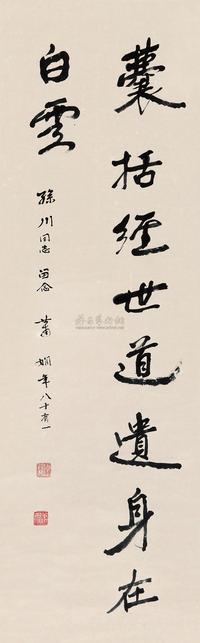 囊括經世道遺身在
白雲
孫川同志留念 蕭嫻年八十有一